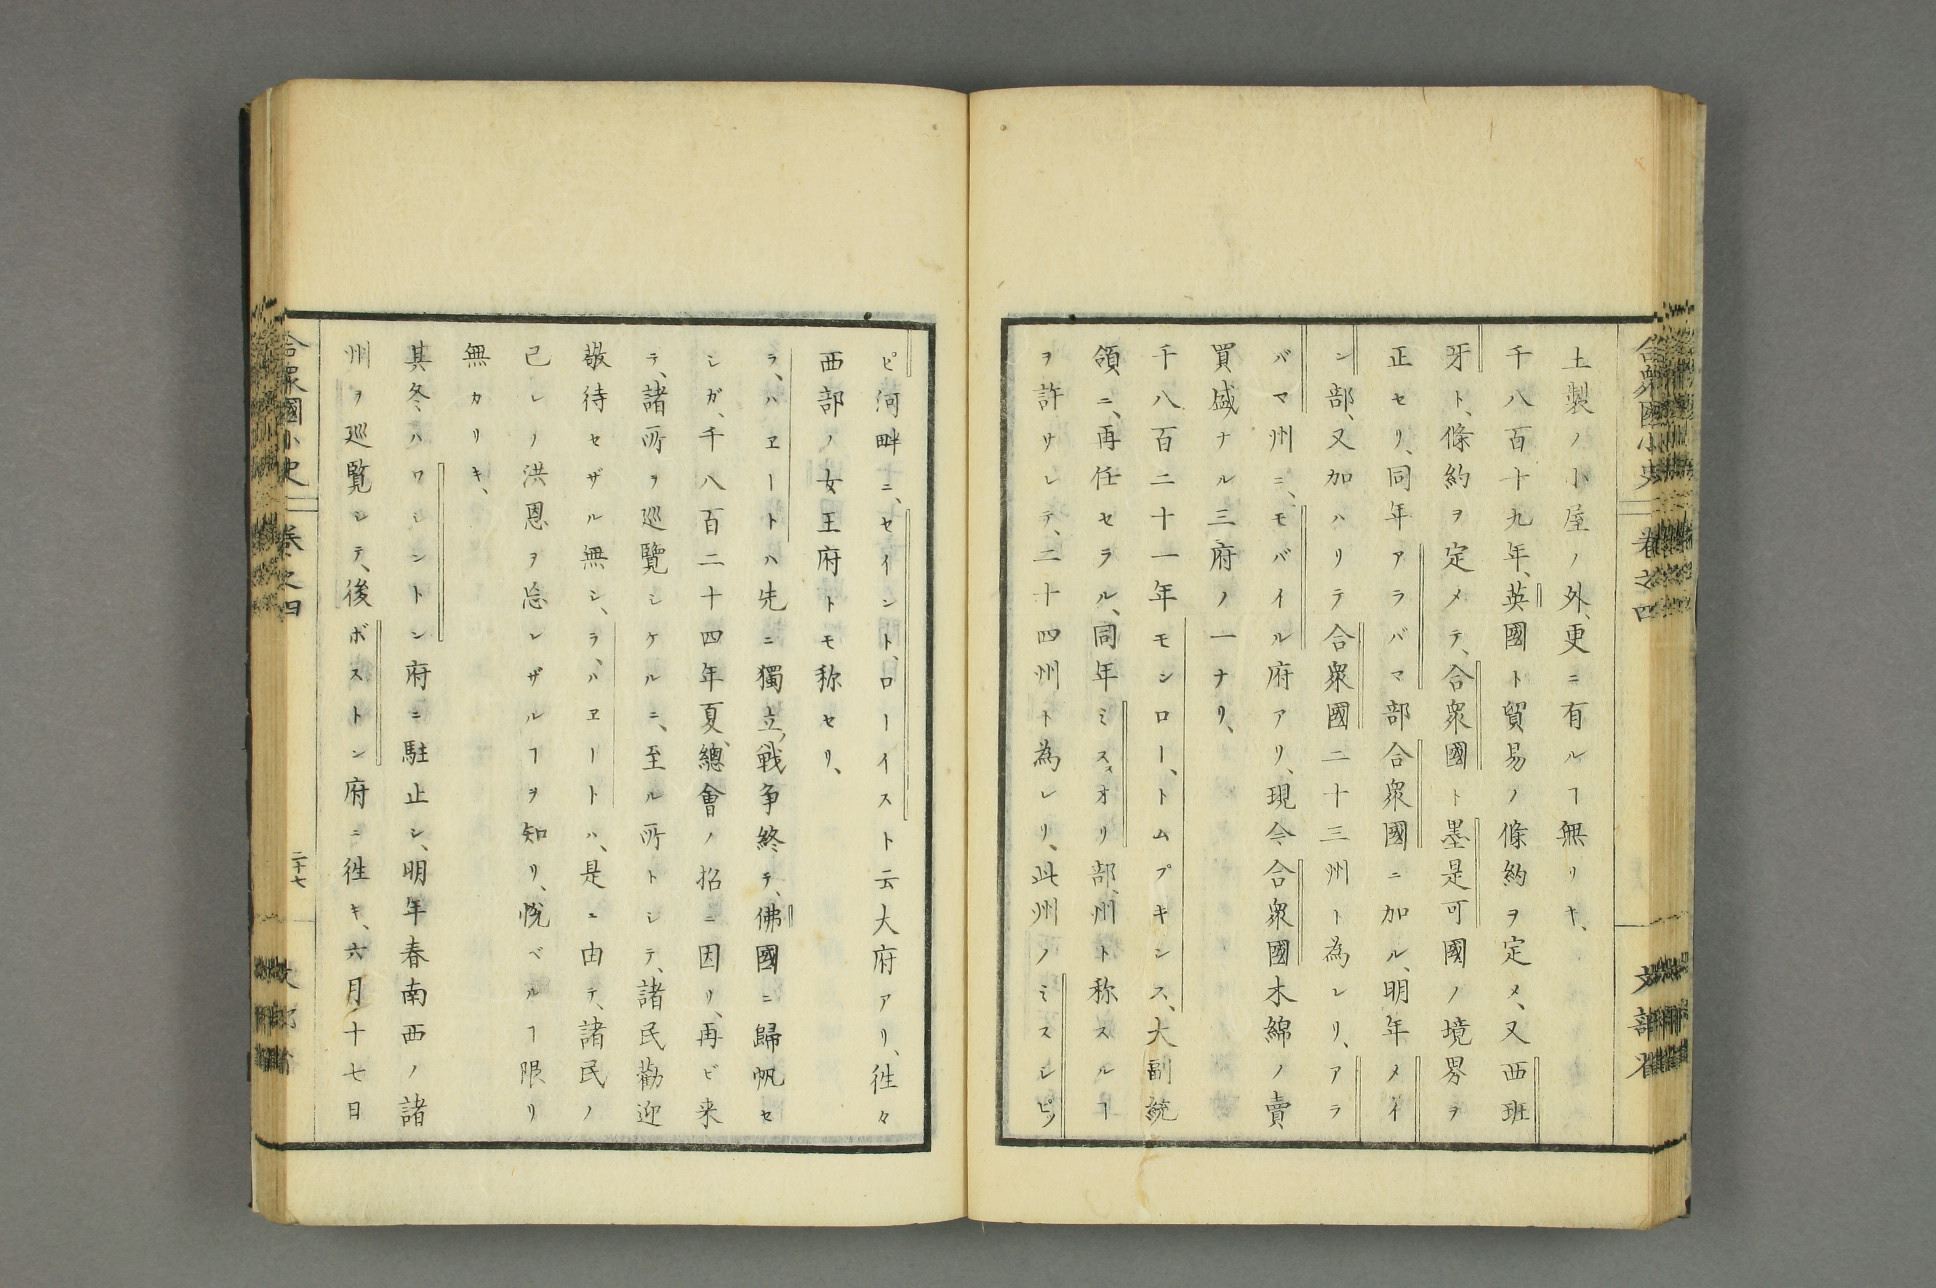 合衆國小史 巻之四 文部省
土製ノ小屋ノ外、更ニ有ルヿ無リキ、
千八百十九年、英國ト貿易ノ條約ヲ定メ、又西班
牙ト、條約ヲ定メテ、合衆國ト墨是可國ノ境界ヲ
正セリ、同年アラバマ部合衆國ニ加ル、明年メイ
ン部、又加ハリテ合衆國二十三州ト為レリ、アラ
バマ州ニ、モバイル府アリ、現今合衆國木綿ノ賣
買盛ナル三府ノ一ナリ、
千八百二十一年モンロー、トムプキンス、大副統
領ニ、再任セラル、同年ミスヲオリ部、州ト称スルヿ
ヲ許サレテ、二十四州ト為レリ、此州ノミスシピツ
ピ河畔ニ、セイント、ローイスト云大府アリ、徃々
西部ノ女王府トモ称セリ、
ラ、ハヱートハ先ニ獨立戦争終テ、佛國ニ歸帆セ
シガ、千八百二十四年夏、總會ノ招ニ因リ、再ビ来
テ、諸所ヲ巡覽シケルニ、至ル所トシテ、諸民勸迎
敬待セザル無シ、ラ、ハヱートハ、是ニ由テ、諸民ノ
己レノ洪恩ヲ忘レザルヿヲ知リ、悦ベルヿ限リ
無カリキ、
其冬ハワシントン府ニ駐止シ、明年春南西ノ諸
州ヲ巡覧シテ、後ボストン府ニ徃キ、六月十七日
合衆國小史 巻之四 二十七